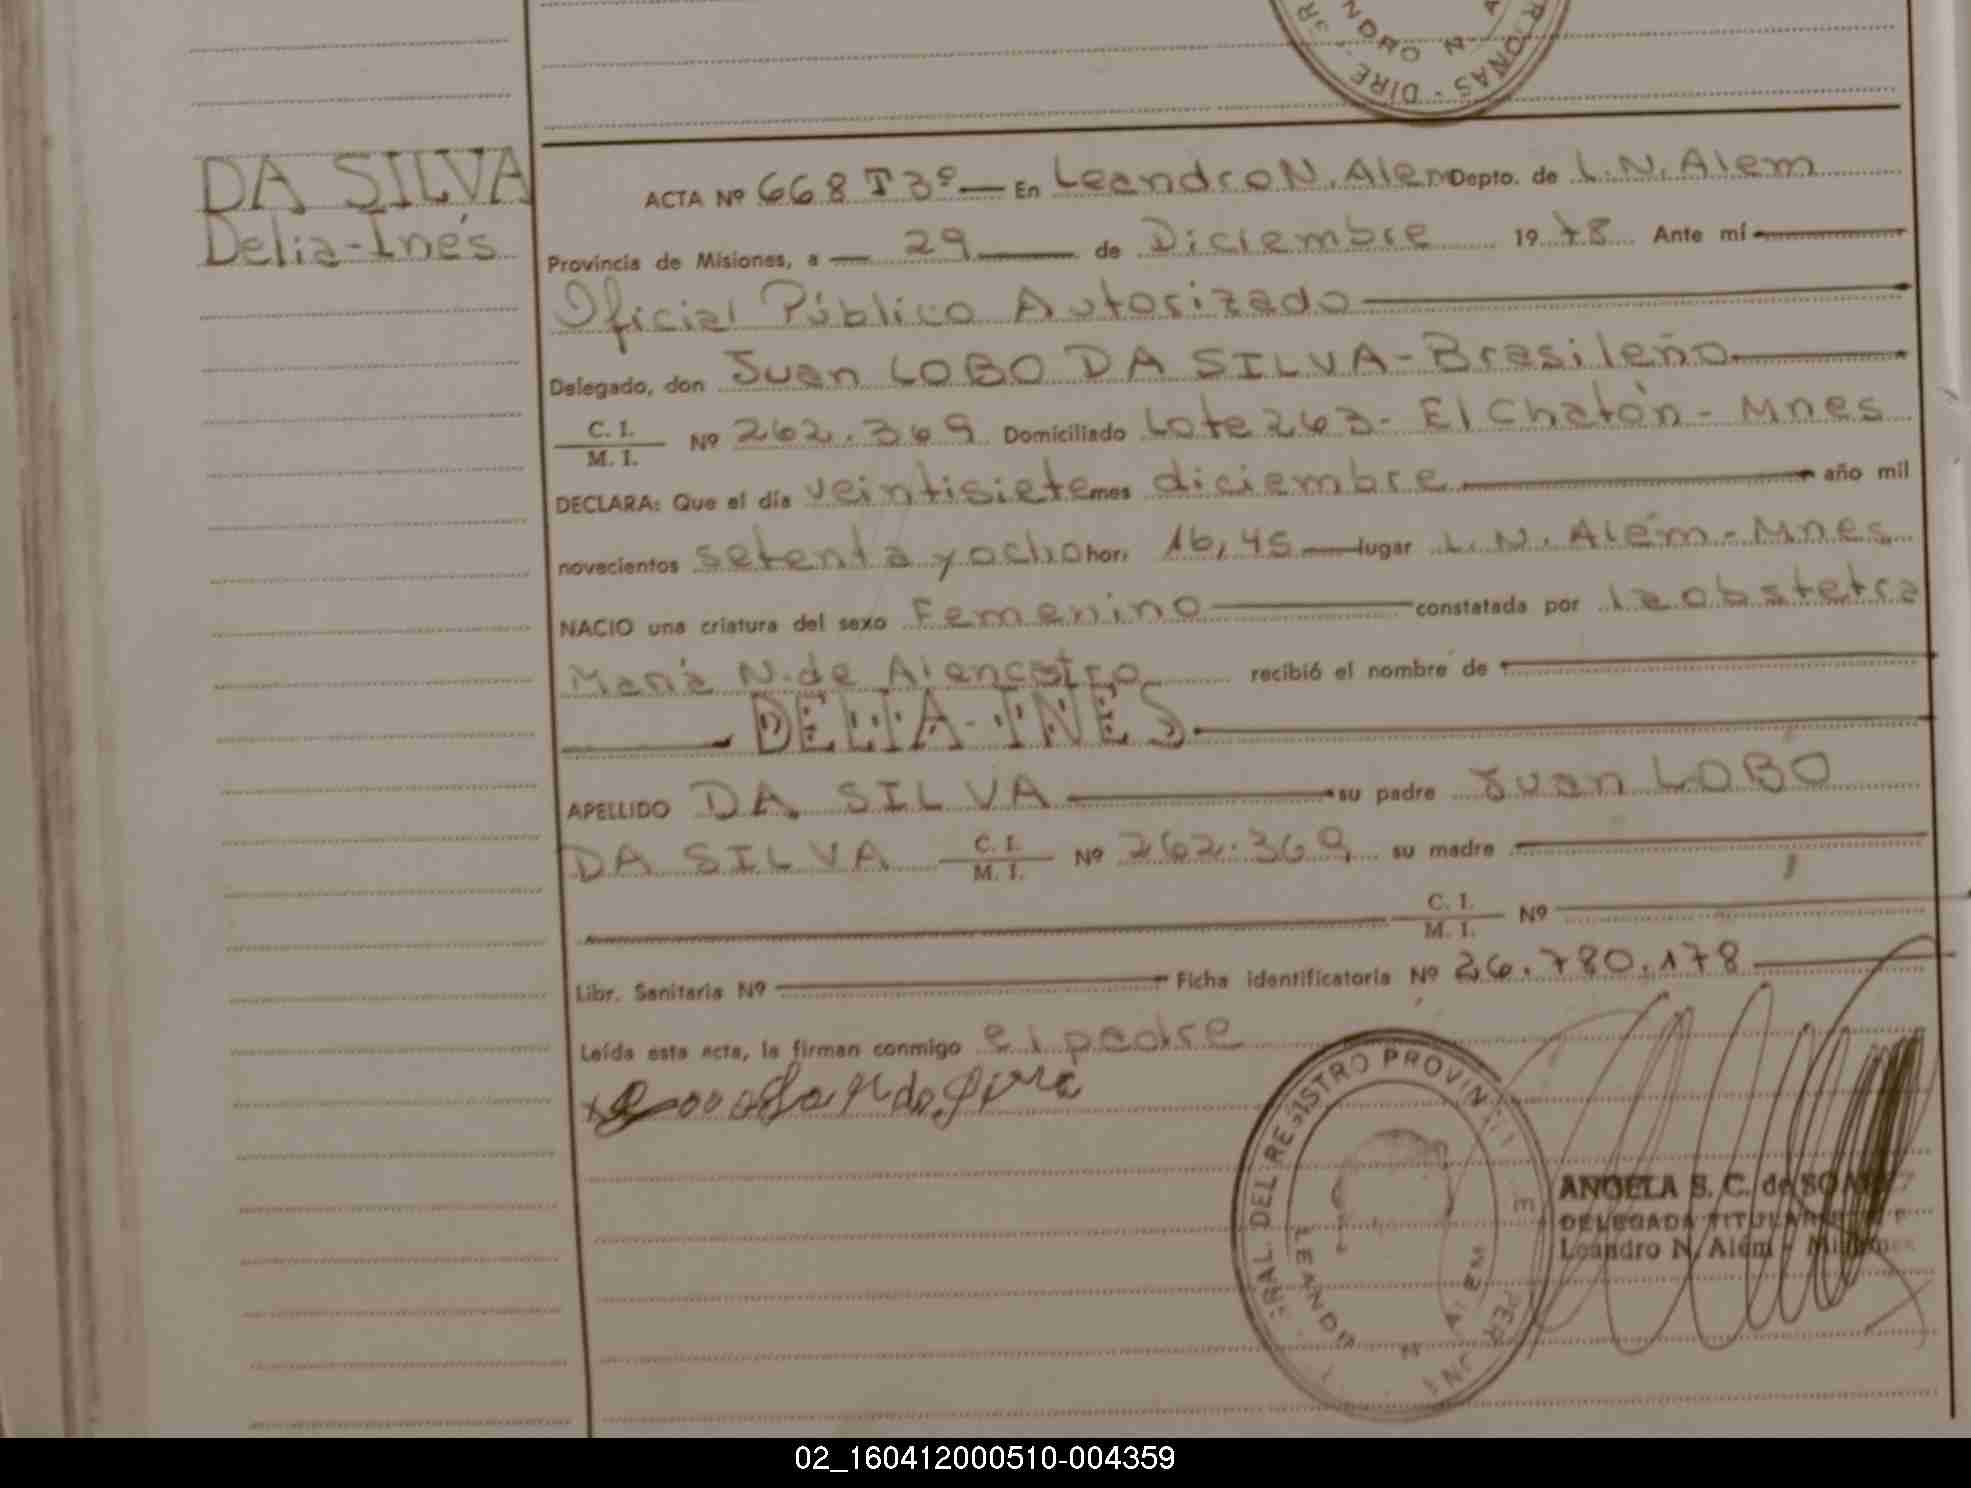 DA SILVA
Delia-Inés
ACTA Nº 668 T3º — En Leandro N. Alem Depto. de L.N. Alem
Provincia de Misiones, a — 29 — de Diciembre 1978 Ante mí —
Oficial Público Autorizado —
Delegado, don Juan LOBO DA SILVA - Brasileño —
C. I.
M. I. Nº 262.369 Domiciliado Lote 263 - El Chatón - Mnes
DECLARA: Que el día veintisiete mes diciembre — año mil
novecientos setenta y ocho hor. 16,45 — lugar L. N. Além - Mnes.
NACIO una criatura del sexo Femenino — constatada por la obstetra
María N. de Alencastro recibió el nombre de —
— DELIA-INÉS —
APELLIDO DA SILVA — su padre Juan LOBO
DA SILVA C. I.
M. I. Nº 262.369 su madre —
— C. I.
M. I. Nº —
Libr. Sanitaria Nº — Ficha identificatoria Nº 26.780.178 —
Leída esta acta, la firman conmigo el padre
REGISTRO PROVIN
LEANDRO N. ALEM
ANGELA S. C. de
DELEGADA TITULAR
Leandro N. Além - Misiones
02_160412000510-004359